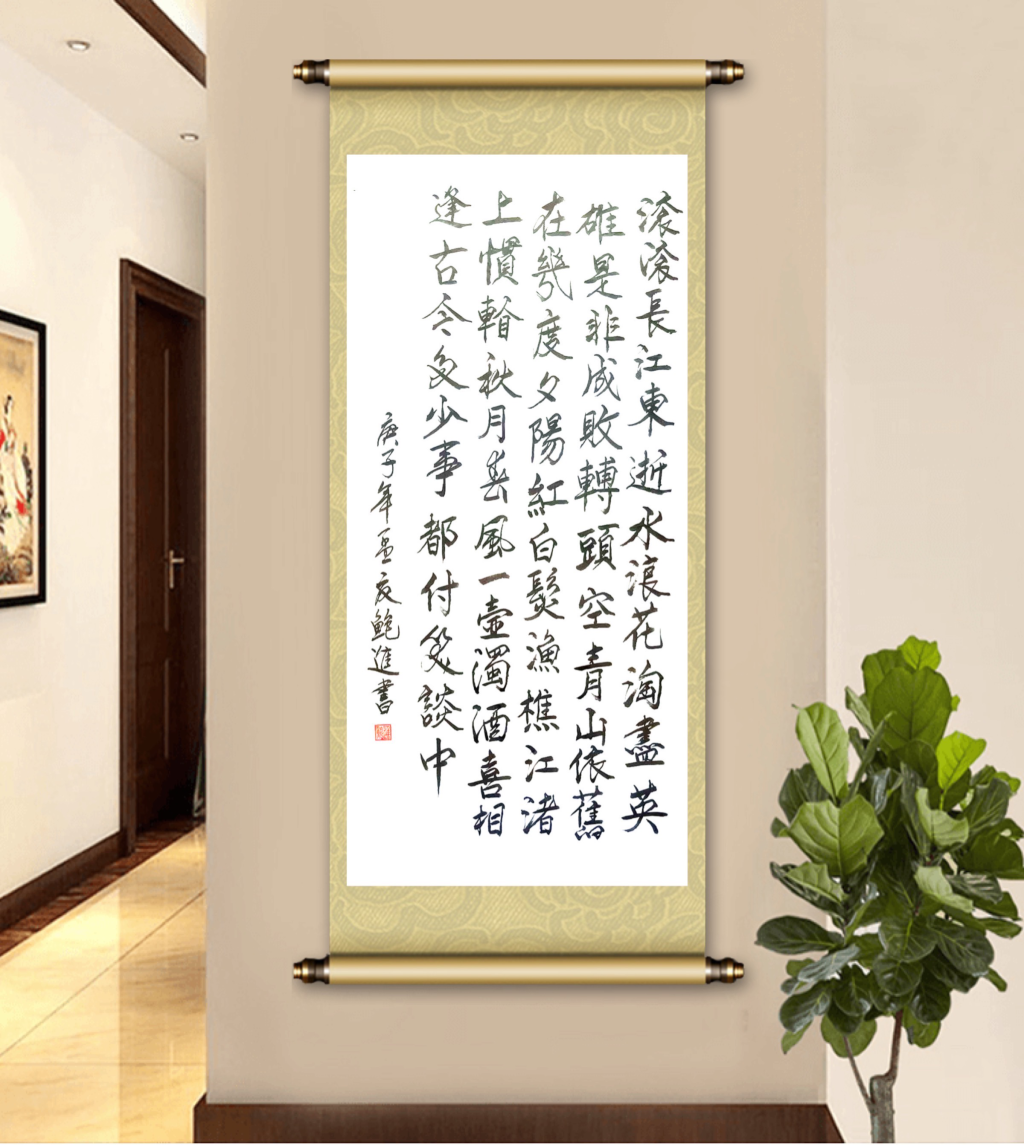 滚滚長江東逝水浪花淘盡英
雄是非成敗轉頭空青山依舊
在幾度夕陽紅白髮漁樵江渚
上慣看秋月春風一壺濁酒喜相
逢古今多少事都付笑談中
庚子年孟夏鮑進書